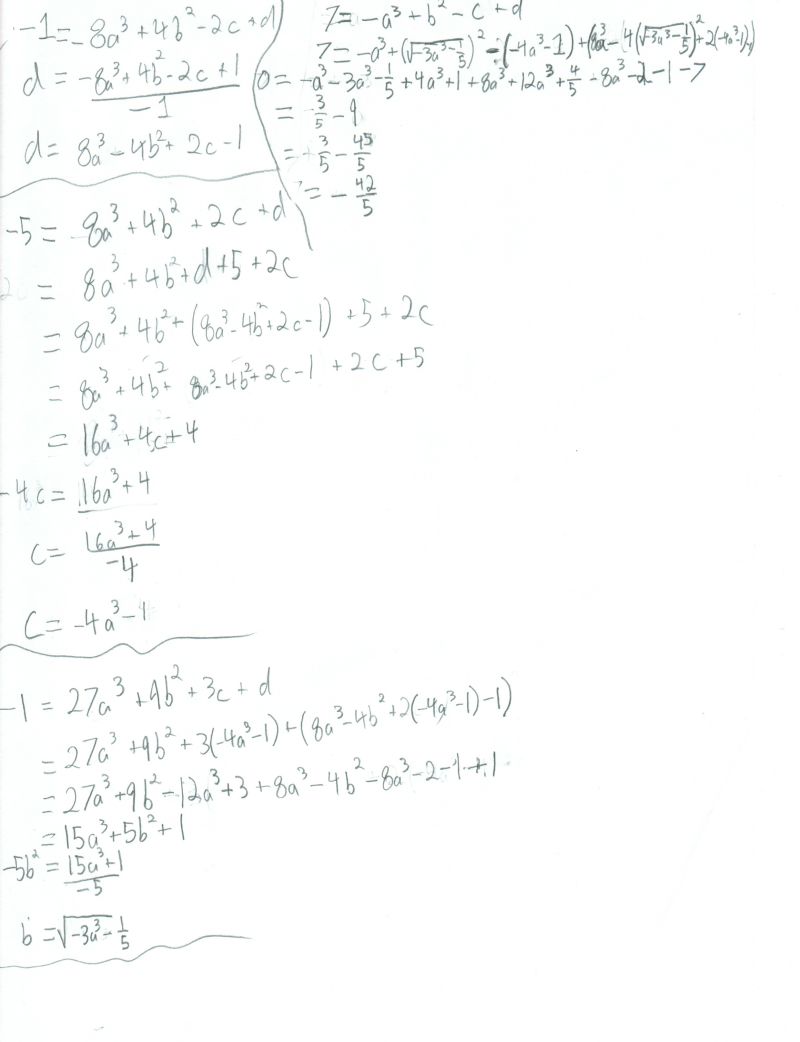 -1 = -8a³ + 4b² - 2c + d
d = -8a³ + 4b² - 2c + 1 / -1
d = 8a³ - 4b² + 2c - 1
7 = -a³ + b² - c + d
7 = -a³ + (√-3a³ - 1/5)² - (-4a³ - 1) + (8a³ - (4(√-3a³ - 1/5)² + 2(-4a³-1)
0 = -a³ - 3a³ - 1/5 + 4a³ + 1 + 8a³ + 12a³ + 4/5 - 8a³ - 2 - 1 - 7
= 3/5 - 9
= 3/5 - 45/5
= - 42/5
-5 = 8a³ + 4b² + 2c + d
= 8a³ + 4b² + d + 5 + 2c
= 8a³ + 4b² + (8a³ - 4b² + 2c - 1) + 5 + 2c
= 8a³ + 4b² + 8a³ - 4b² + 2c - 1 + 2c + 5
= 16a³ + 4c + 4
-4c = 16a³ + 4
c = 16a³ + 4 / -4
c = -4a³ - 1
-1 = 27a³ + 9b² + 3c + d
= 27a³ + 9b² + 3(-4a³ - 1) + (8a³ - 4b² + 2(-4a³ - 1) - 1)
= 27a³ + 9b² - 12a³ + 3 + 8a³ - 4b² - 8a³ - 2 - 1 + 1
= 15a³ + 5b² + 1
-5b² = 15a³ + 1 / -5
b = √-3a³ - 1/5